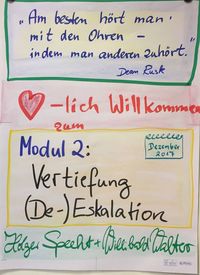 „Am besten hört man
mit den Ohren –
indem man anderen zuhört."
Dean Rusk
-lich Willkommen
zum
Modul 2:
Dezember
2017
Vertiefung
(De-)Eskalation
Holger Specht + Willibald Walter